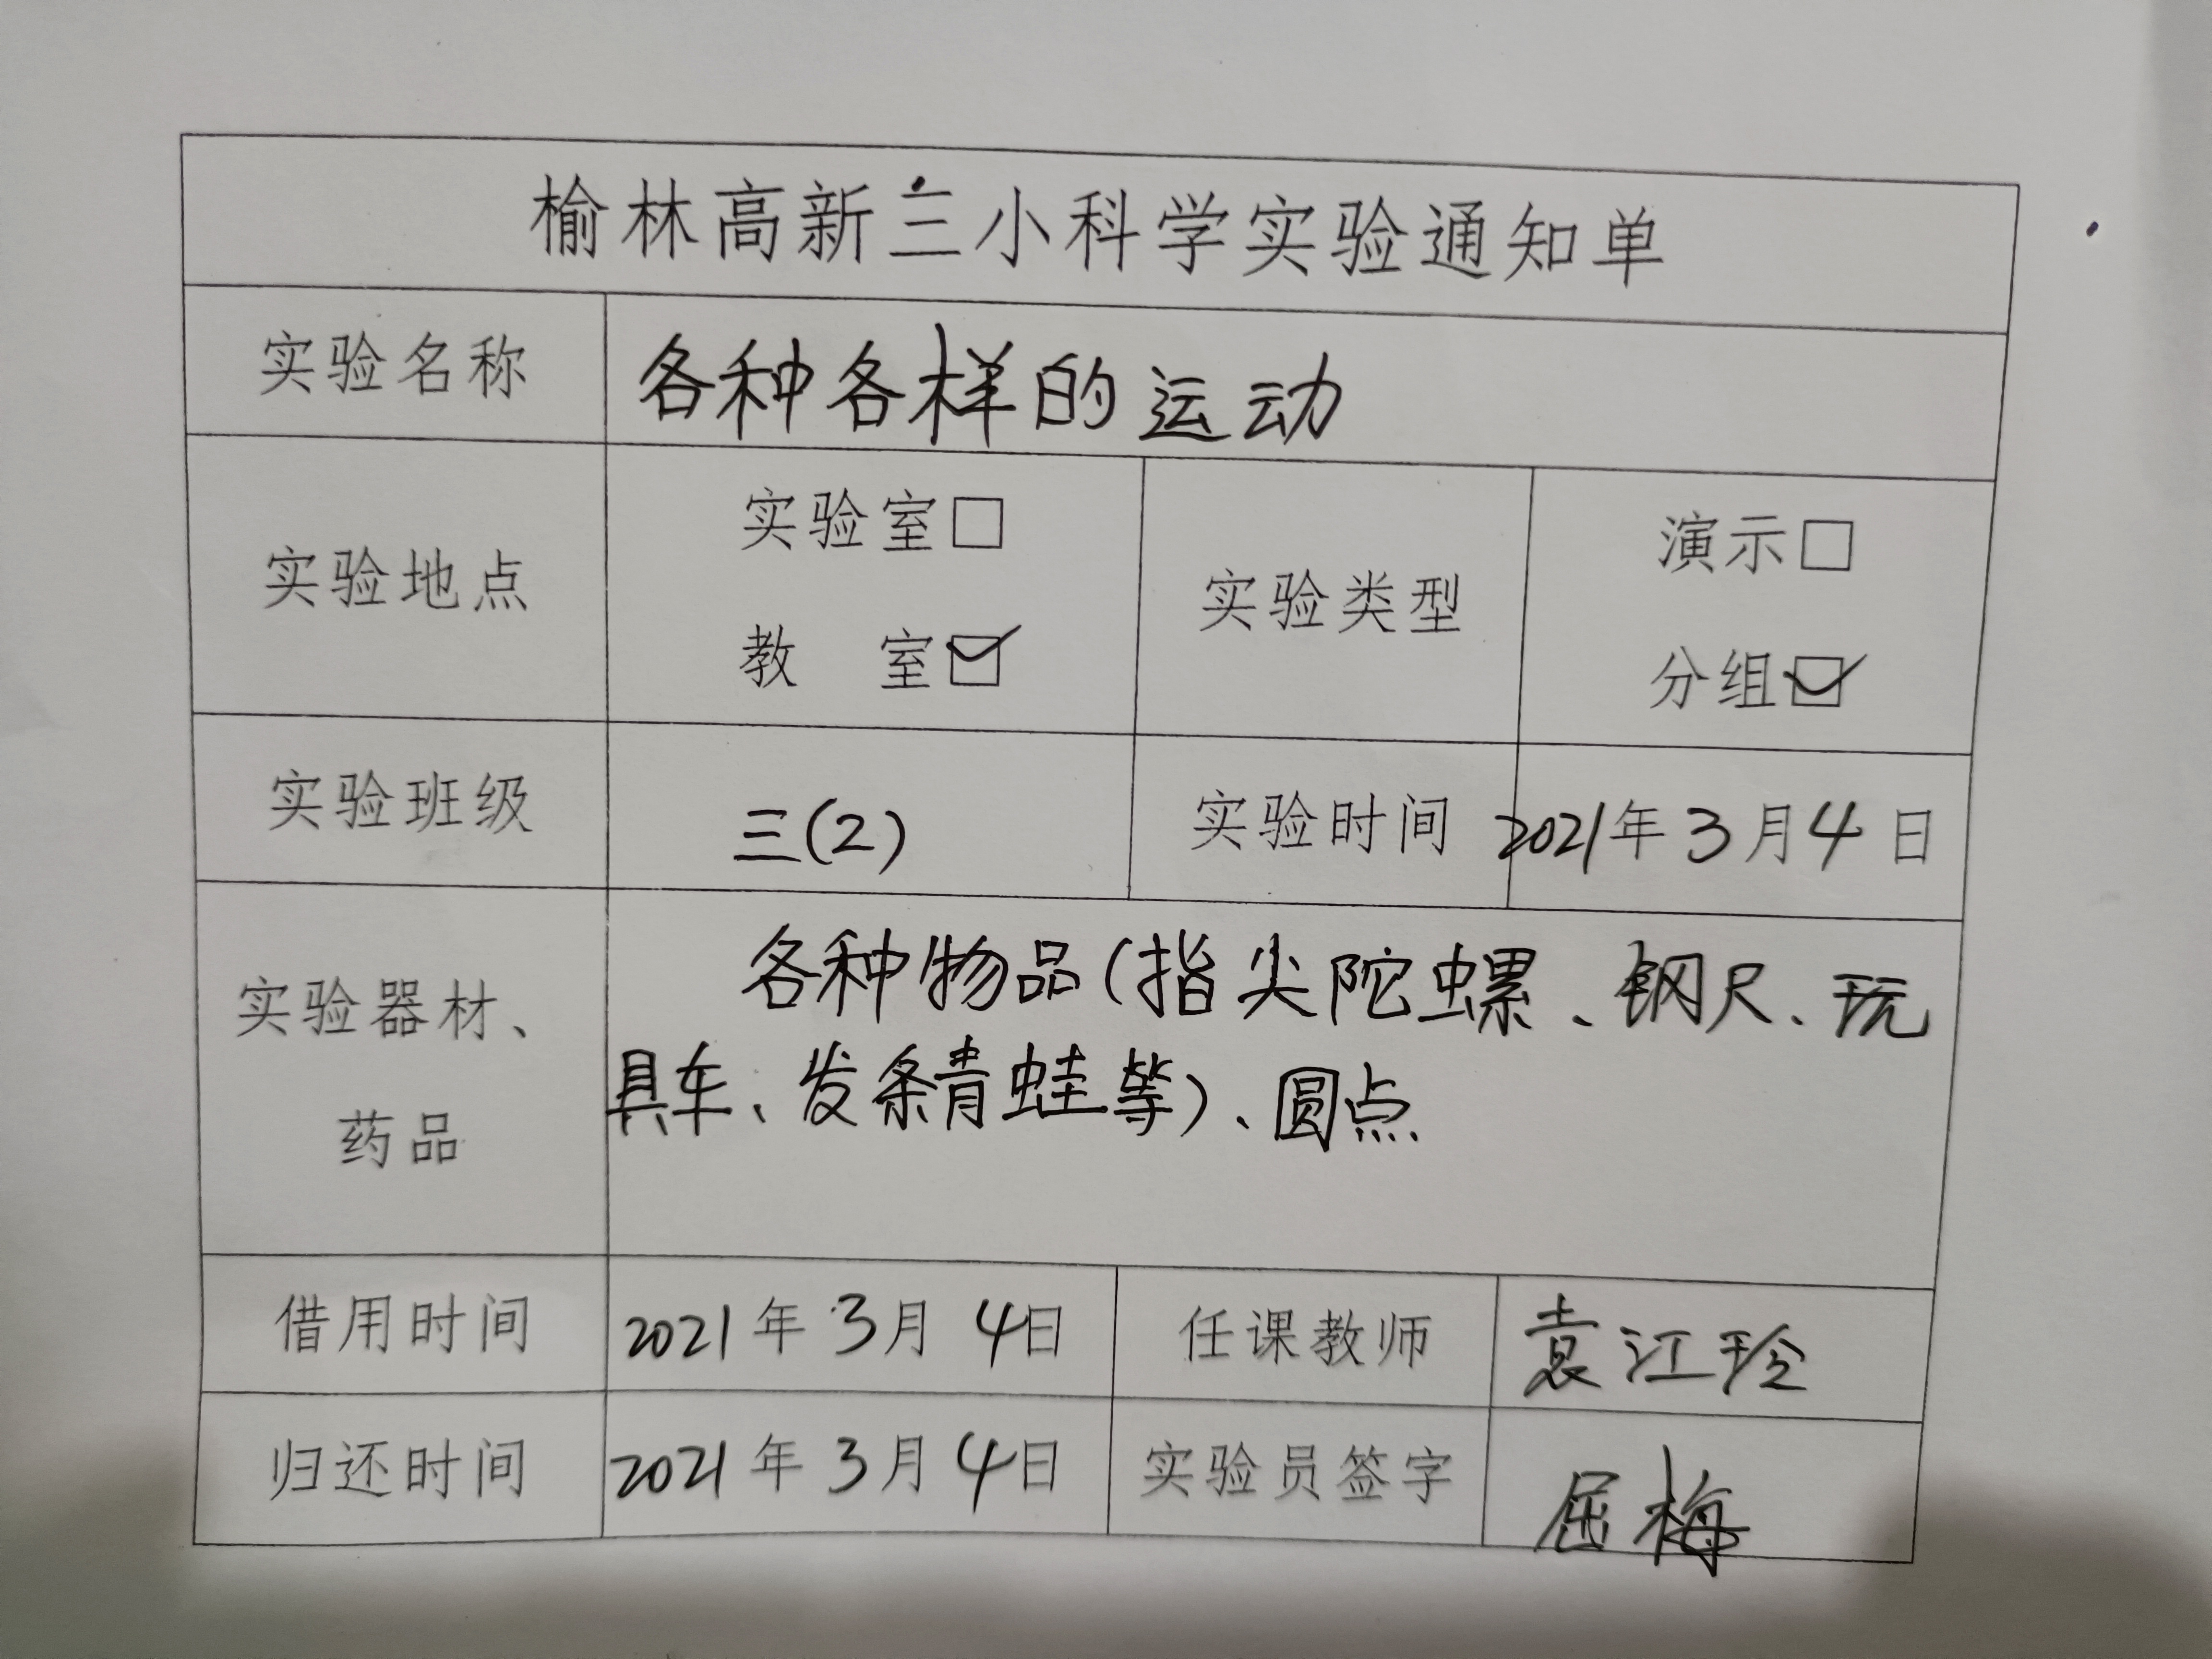 榆林高新三小科学实验通知单
实验名称 各种各样的运动
实验地点 实验室□ 实验类型 演示□
教 室☑ 分组☑
实验班级 三(2) 实验时间 2021年3月4日
实验器材、 各种物品(指尖陀螺、钢尺、玩
药品 具车、发条青蛙等)、圆点
借用时间 2021年3月4日 任课教师 袁江玲
归还时间 2021年3月4日 实验员签字 屈梅